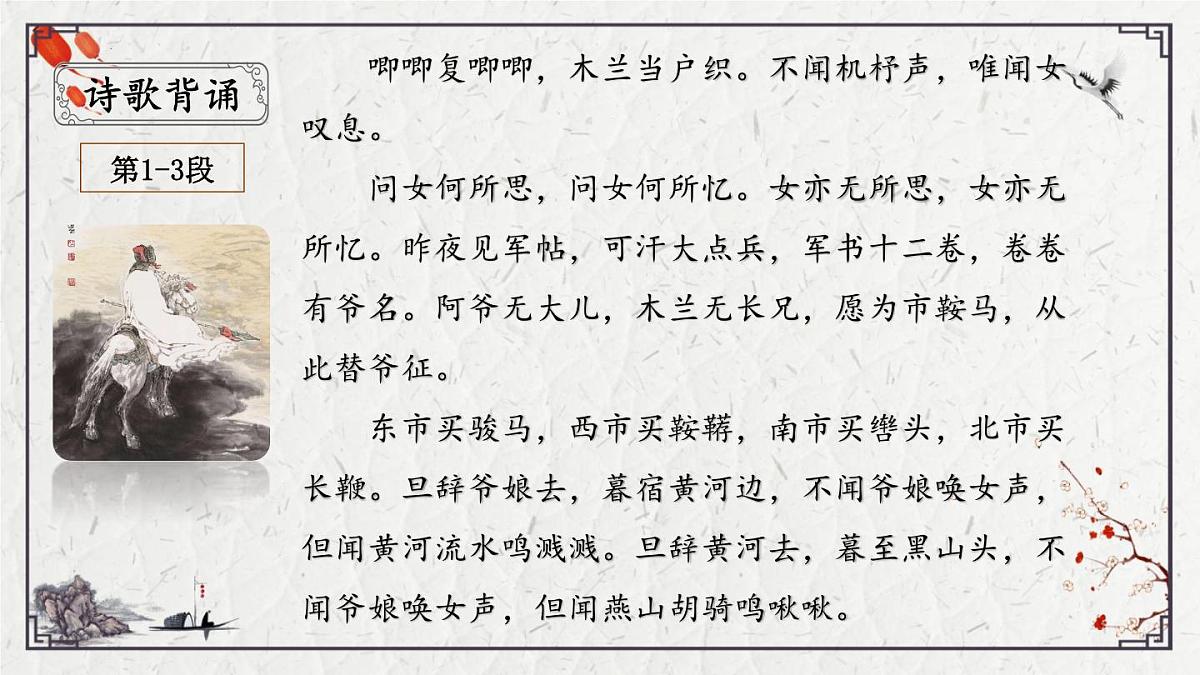 诗歌背诵
第1-3段
唧唧复唧唧，木兰当户织。不闻机杼声，唯闻女
叹息。
问女何所思，问女何所忆。女亦无所思，女亦无
所忆。昨夜见军帖，可汗大点兵，军书十二卷，卷卷
有爷名。阿爷无大儿，木兰无长兄，愿为市鞍马，从
此替爷征。
东市买骏马，西市买鞍鞯，南市买辔头，北市买
长鞭。旦辞爷娘去，暮宿黄河边，不闻爷娘唤女声，
但闻黄河流水鸣溅溅。旦辞黄河去，暮至黑山头，不
闻爷娘唤女声，但闻燕山胡骑鸣啾啾。